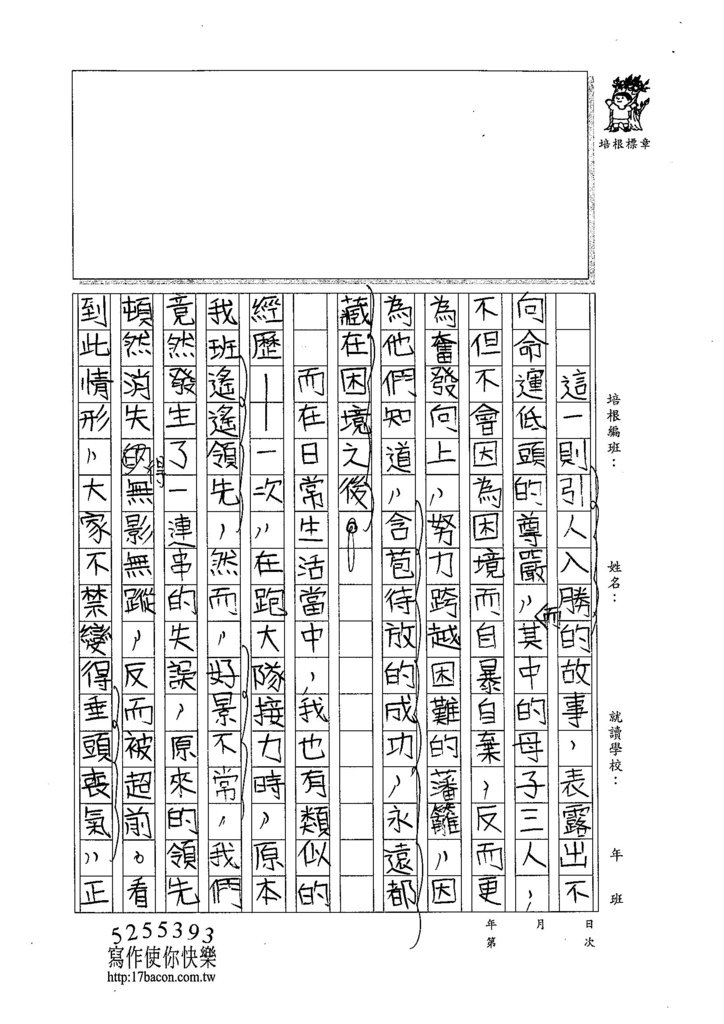 培根標章
培根編班：
姓名：
就讀學校：
年
班
日
次
月
年
第
這一則引人入勝的故事，表露出不
向命運低頭的尊嚴，而其中的母子三人，
不但不會因為困境而自暴自棄，反而更
為奮發向上，努力跨越困難的藩籬，因
為他們知道，含苞待放的成功，永遠都
藏在困境之後。
而在日常生活當中，我也有類似的
經歷——一次，在跑大隊接力時，原本
我班遙遙領先，然而，好景不常，我們
竟然發生了一連串的失誤，原來的領先
頓然消失的得無影無蹤，反而被超前。看
到此情形，大家不禁變得垂頭喪氣，正
5255393
寫作使你快樂
http:17bacon.com.tw